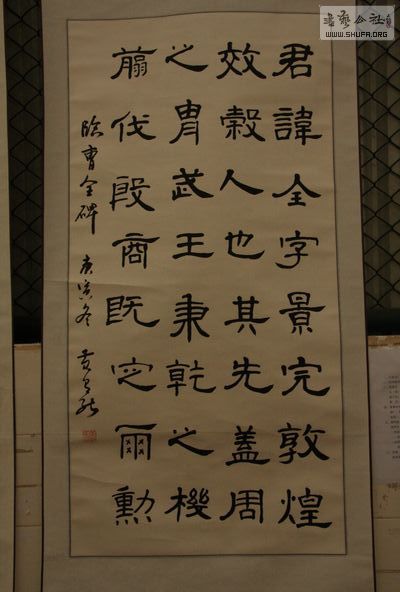 君諱全字景完敦煌
效穀人也其先蓋周
之胄武王秉乾之機
翦伐殷商既定爾勳
臨曹全碑 庚寅冬
書藝公社
WWW.SHUFA.ORG